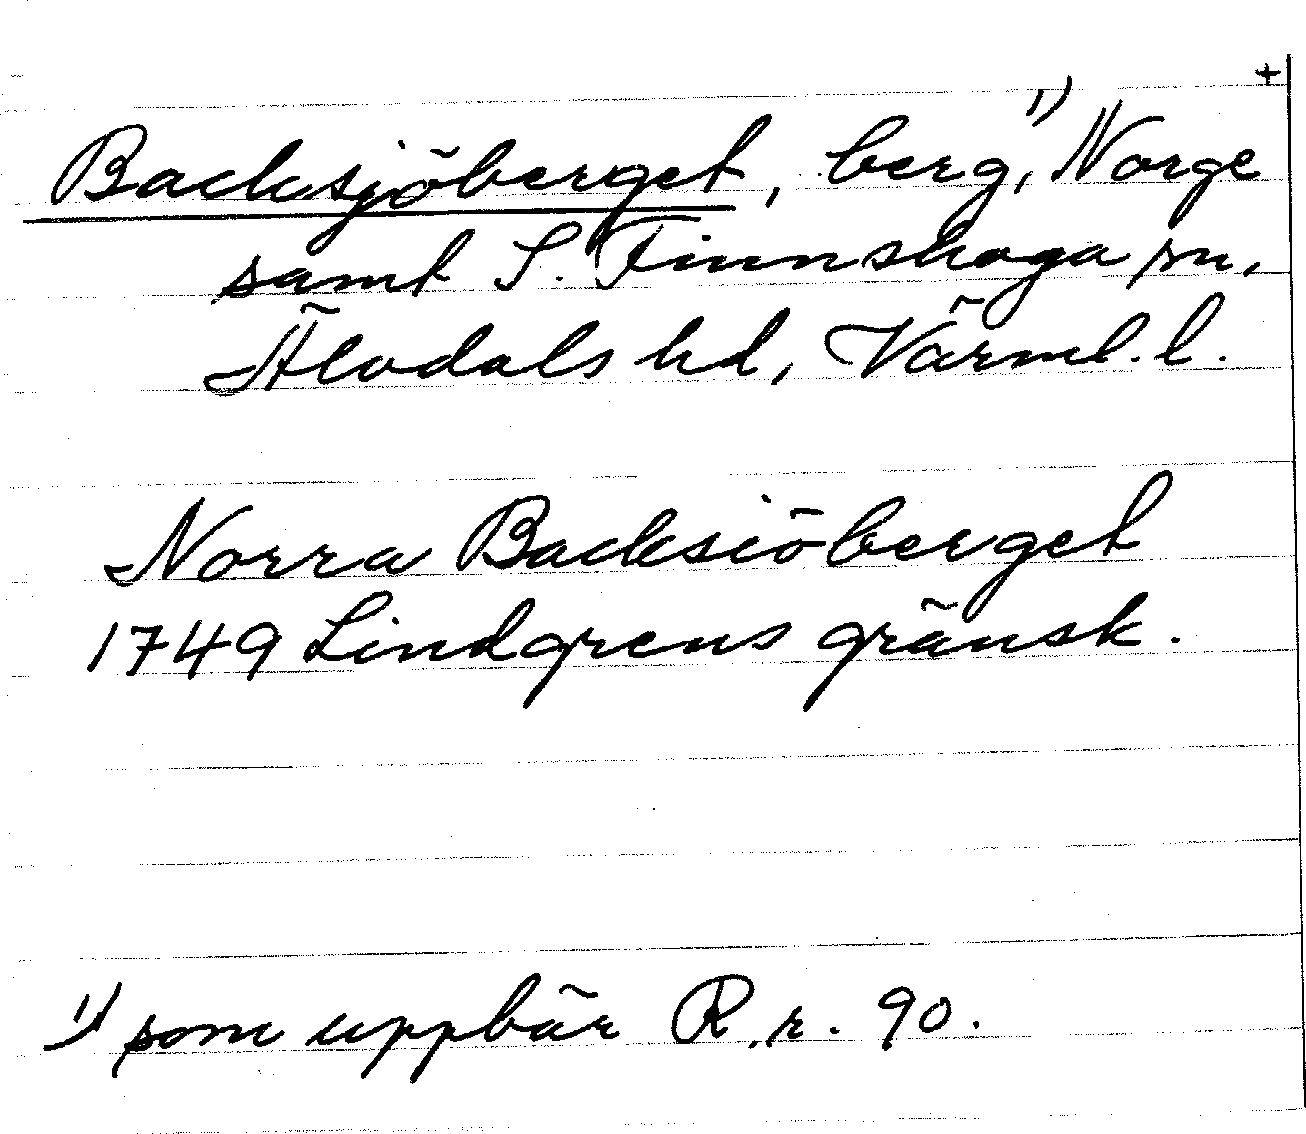 +
Backsjöberget, berg,¹⁾ Norge
samt S. Finnskoga sn,
Älvdals hd, Värml. l.
Norra Backsiöberget
1749 Lindgrens gränsk.
¹⁾ som uppbär R.r. 90.